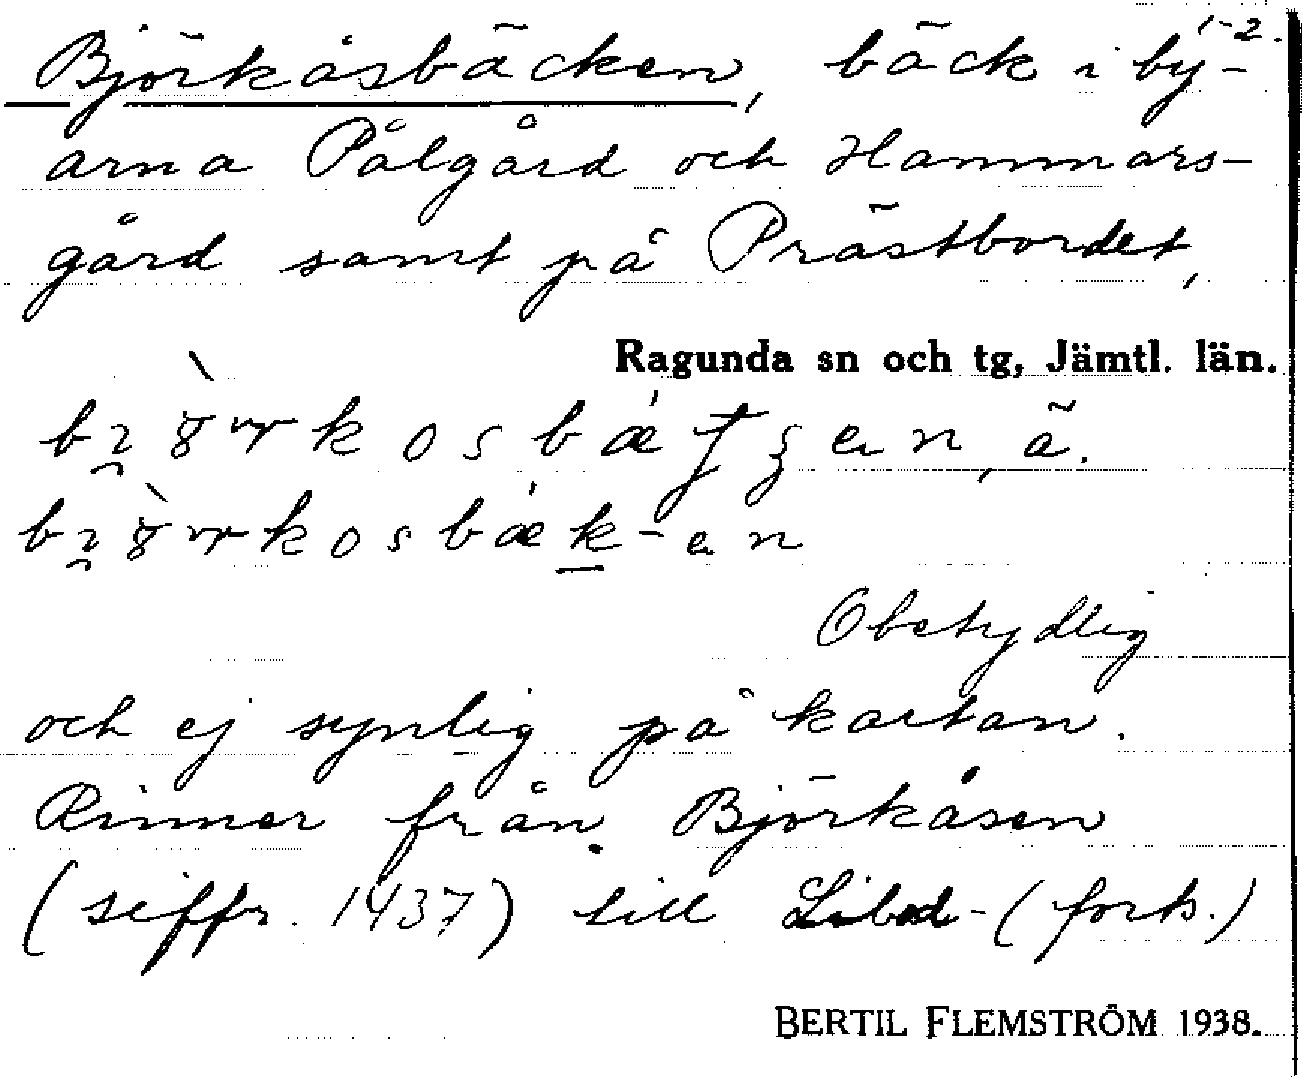 1-2.
Björkåsbäcken, bäck i by-
arna Pålgård och Hammars-
gård samt på Prästbordet,
Ragunda sn och tg, Jämtl. län.
Obetydlig
och ej synlig på kartan.
Rinner från Björkåsen
(siffr. 1437) till (forts.)
BERTIL FLEMSTRÖM 1938.